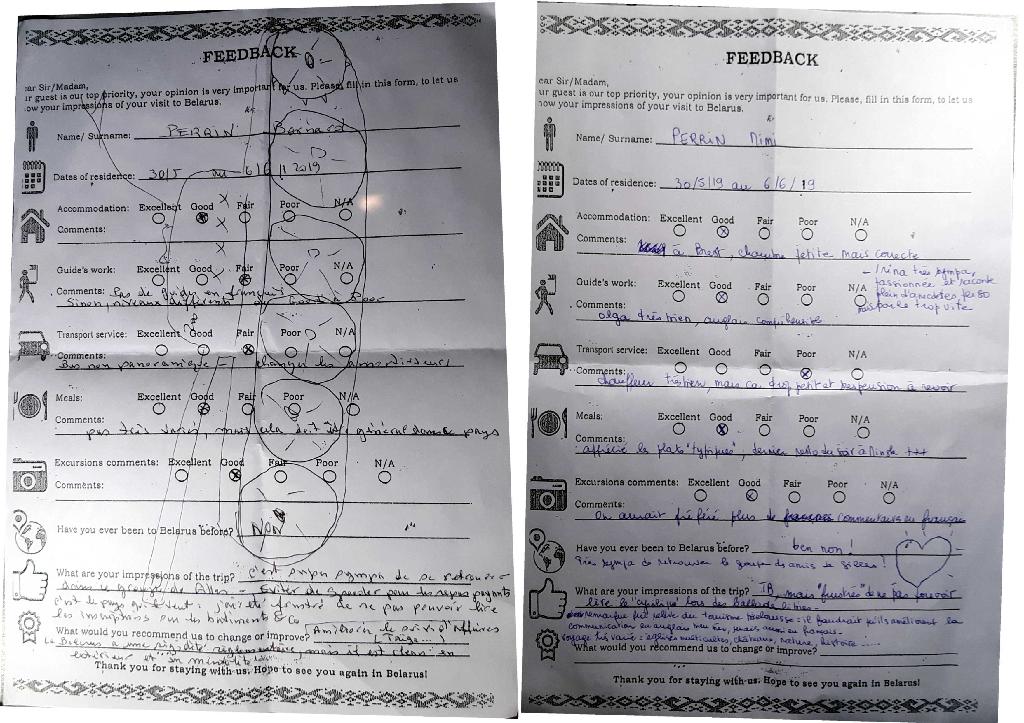 FEEDBACK
ear Sir/Madam,
ur guest is our top priority, your opinion is very important for us. Please, fill in this form, to let us
ow your impressions of your visit to Belarus.
Name/ Surname: PERRIN Bernard
Dates of residence: 30/5 au 6/6/2019
Accommodation: Excellent Good Fair Poor N/A
Comments:
Guide's work: Excellent Good Fair Poor N/A
Comments: Pas de guide en français
Sinon, niveaux différents
Transport service: Excellent Good Fair Poor N/A
Comments:
Bus non panoramique = changer les amortisseurs
Meals: Excellent Good Fair Poor N/A
Comments:
pas très varié, mais cela doit être général dans le pays
Excursions comments: Excellent Good Fair Poor N/A
Comments:
Have you ever been to Belarus before? NON
What are your impressions of the trip? c'est super sympa de se retrouver
dans le groupe de
c'est le pays qui : j'ai été frustré de ne pas pouvoir lire
les inscriptions sur les bâtiments & Co
What would you recommend us to change or improve? Améliorer le
Le Belarus a une rigidité mais il est clean en
extérieur et en mentalité
Thank you for staying with us. Hope to see you again in Belarus!
FEEDBACK
ear Sir/Madam,
ur guest is our top priority, your opinion is very important for us. Please, fill in this form, to let us
now your impressions of your visit to Belarus.
Name/ Surname: PERRIN Mimi
Dates of residence: 30/5/19 au 6/6/19
Accommodation: Excellent Good Fair Poor N/A
Comments: à Brest, chambre petite mais correcte
Guide's work: Excellent Good Fair Poor N/A
- Irina très sympa, passionnée et raconte plein d'anecdotes mais parle trop vite
Comments:
olga très bien, anglais compréhensible
Transport service: Excellent Good Fair Poor N/A
Comments:
chauffeur très bien, mais car trop petit et suspension à revoir
Meals: Excellent Good Fair Poor N/A
Comments:
apprécié les plats "typiques", dernier resto du soir à Minsk +++
Excursions comments: Excellent Good Fair Poor N/A
Comments:
On aurait préféré plus de commentaires en français
Have you ever been to Belarus before? ben non !
Très sympa de retrouver le groupe d'amis de Gilles !
What are your impressions of the trip? TB, mais "frustrés" de ne pas pouvoir
lire le "cyrillique" lors des ballades libres
remarque du tourisme : il faudrait qu'ils améliorent la
communication en anglais mais aussi en français.
voyage très varié : églises multicultes, châteaux, nature, histoire .....
What would you recommend us to change or improve?
Thank you for staying with us. Hope to see you again in Belarus!